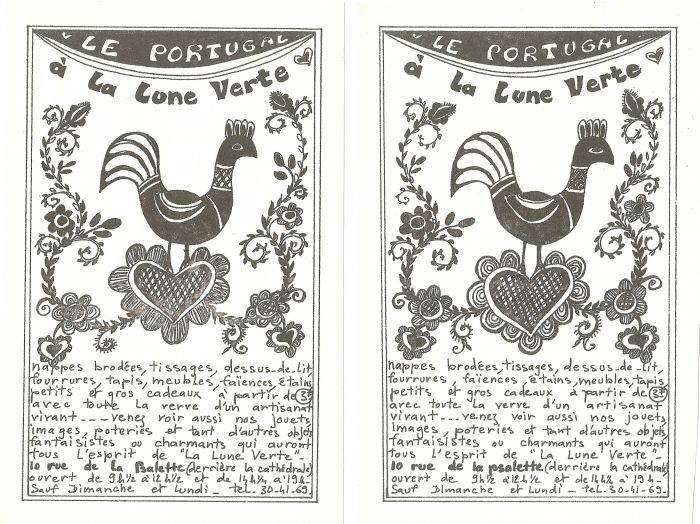 LE PORTUGAL
à La Lune Verte
nappes brodées, tissages, dessus-de-lit,
fourrures, tapis, meubles, faïences, étains
petits et gros cadeaux à partir de 3F
avec toute la verve d'un artisanat
vivant---- venez voir aussi nos jouets
images, poteries et tant d'autres objets
fantaisistes ou charmants qui auront
tous l'esprit de "La Lune Verte"-
10 rue de la Psalette (derrière la cathédrale)
ouvert de 9h½ à 12h½ et de 14h½ à 19h-
Sauf Dimanche et Lundi - tel. 30-41-69-
LE PORTUGAL
à La Lune Verte
nappes brodées, tissages, dessus-de-lit,
fourrures, faïences, étains, meubles, tapis
petits et gros cadeaux à partir de 3F
avec toute la verve d'un artisanat
vivant---- venez voir aussi nos jouets
images, poteries et tant d'autres objets
fantaisistes ou charmants qui auront
tous l'esprit de "La Lune Verte"-
10 rue de la psalette (derrière la cathédrale)
ouvert de 9h½ à 12h½ et de 14h½ à 19h-
Sauf Dimanche et Lundi - tel. 30-41-69-